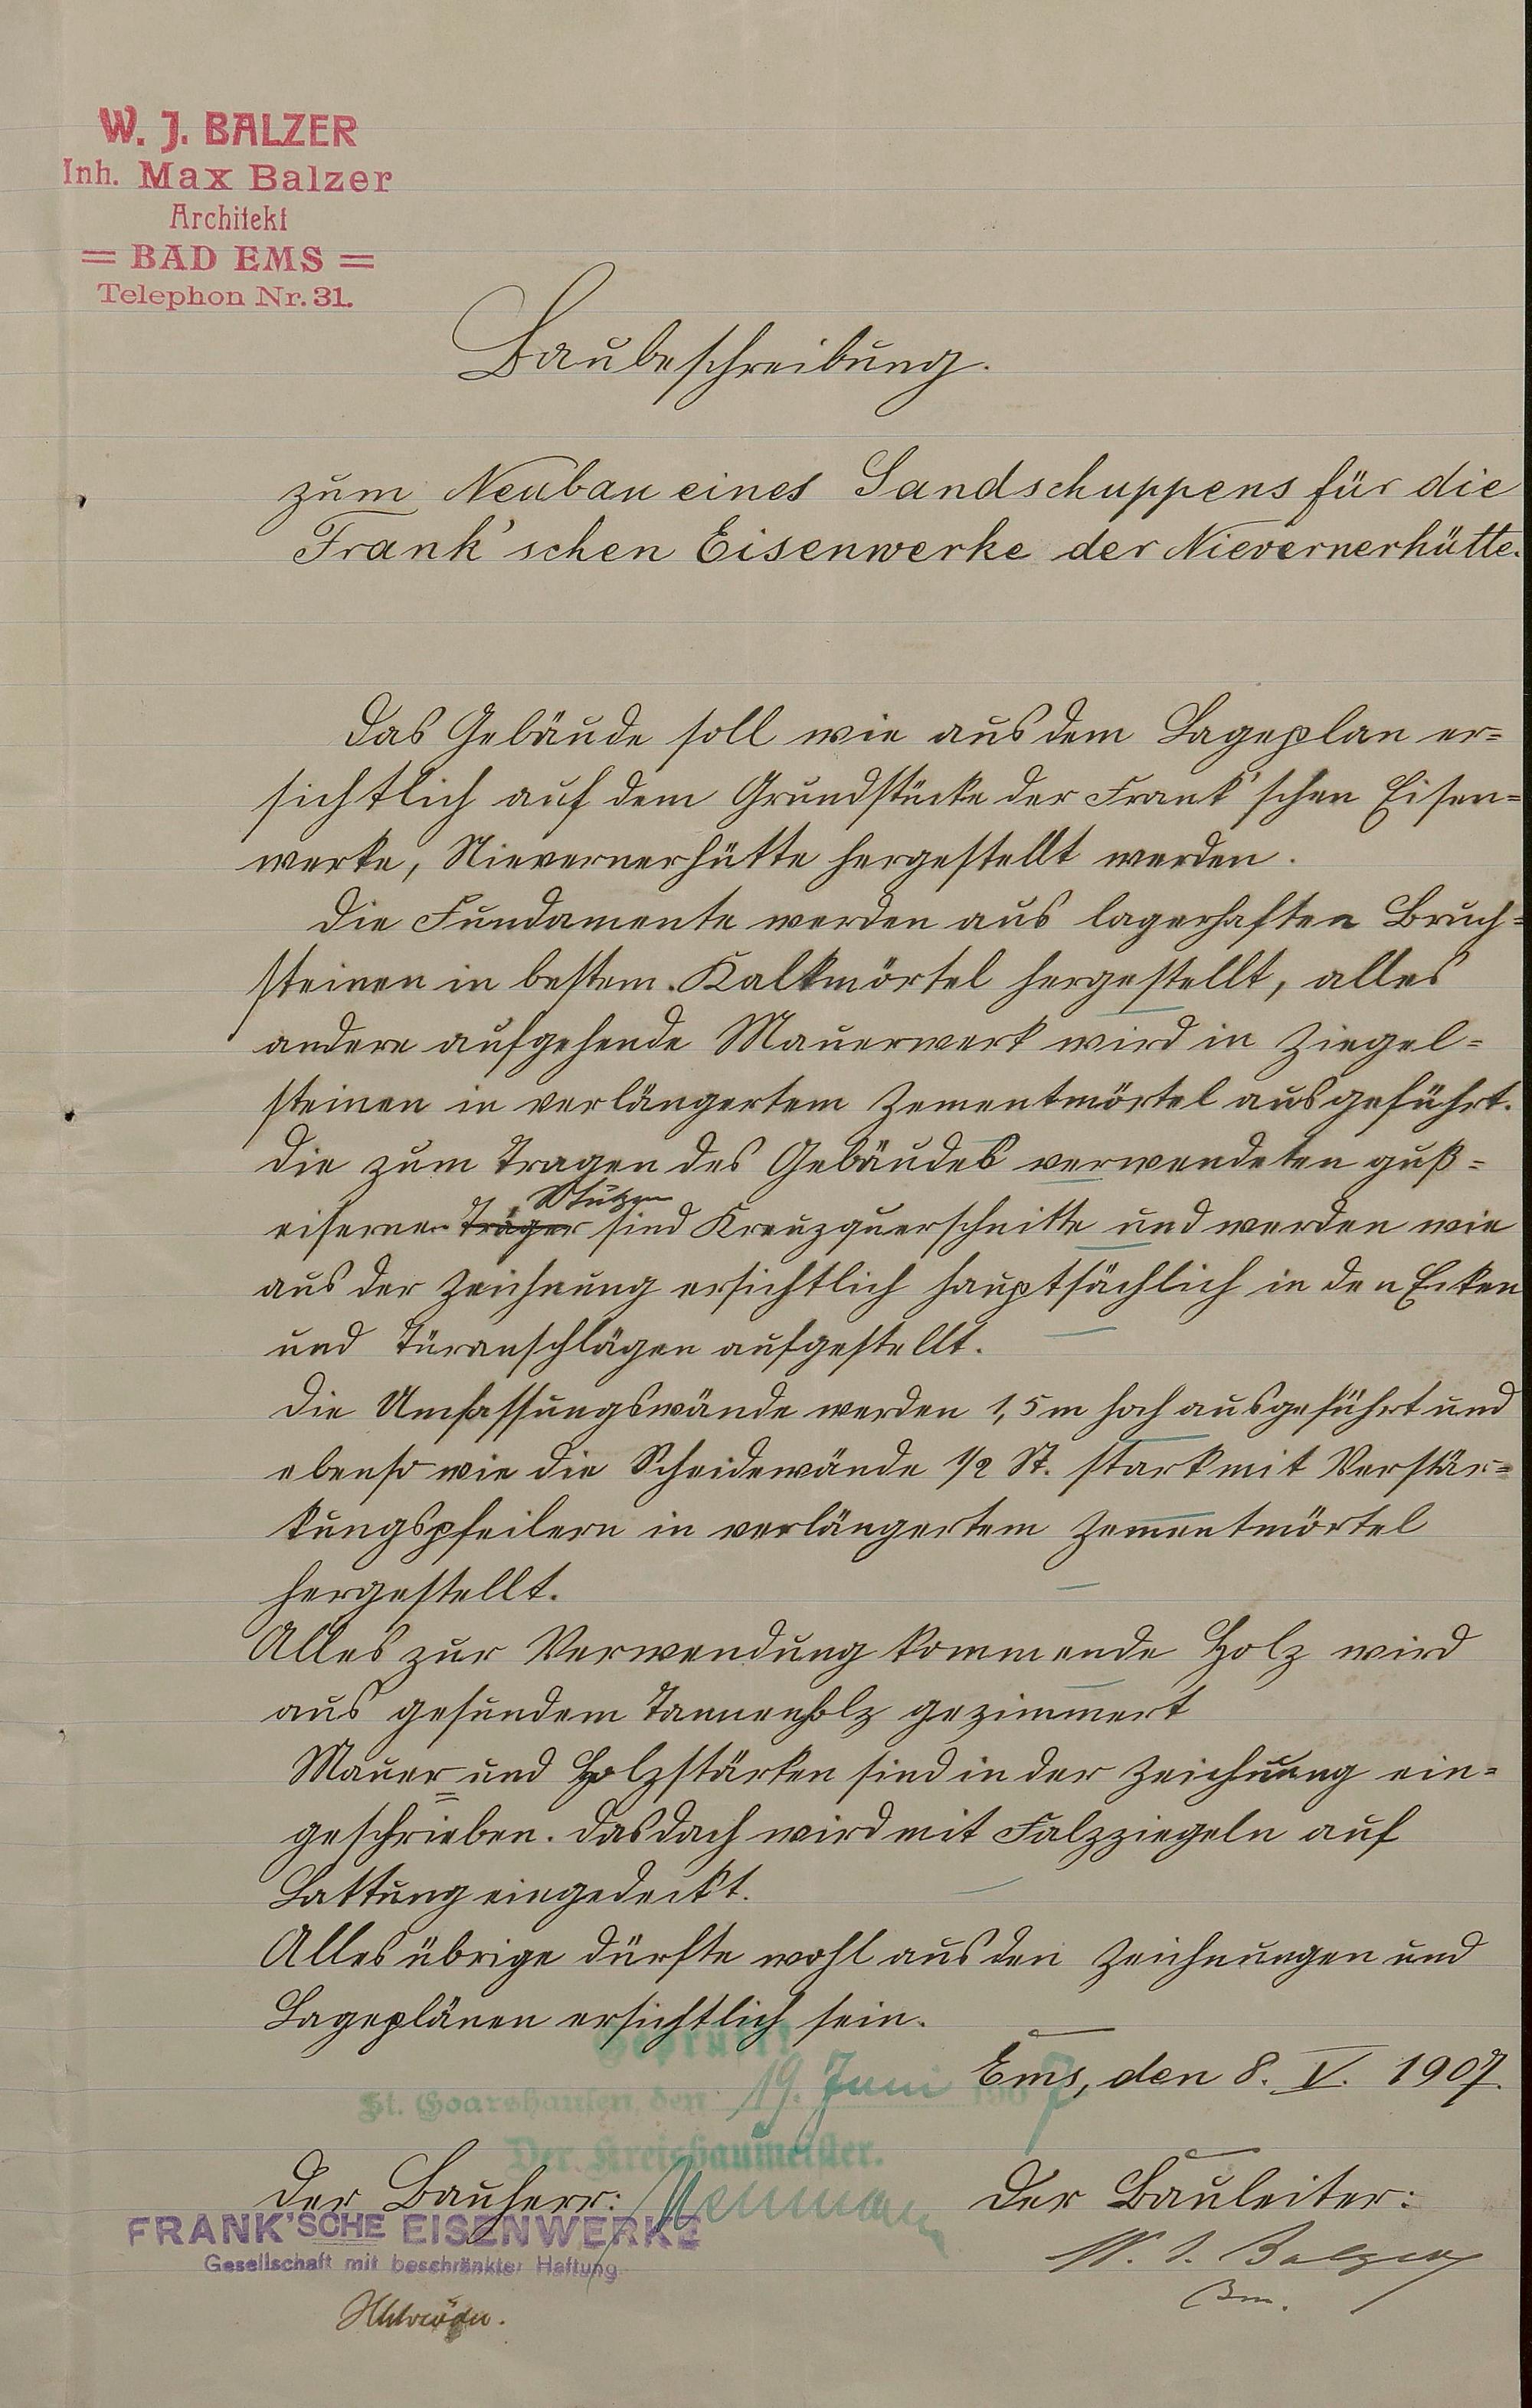 W. J. BALZER
Inh. Max Balzer
Architekt
= BAD EMS =
Telephon Nr. 31.
Baubeschreibung.
zum Neubau eines Sandschuppens für die
Frank'schen Eisenwerke der Nievernerhütte.
Das Gebäude soll wie aus dem Lageplan er=
sichtlich auf dem Grundstücke der Frank'schen Eisen=
werke, Nievernerhütte hergestellt werden.
Die Fundamente werden aus lagerhaften Bruch=
steinen in bestem Kalkmörtel hergestellt, alles
andere aufgehende Mauerwerk wird in Ziegel=
steinen in verlängertem Zementmörtel ausgeführt.
Die zum Tragen des Gebäudes verwendeten guß=
Stützen
eisernen Träger sind Kreuzquerschnitte und werden wie
aus der Zeichnung ersichtlich hauptsächlich in den Ecken
und Türanschlägen aufgestellt.
Die Umfassungswände werden 1,5 m hoch ausgeführt und
ebenso wie die Scheidewände 1/2 St. stark mit Verstär=
kungspfeilern in verlängertem Zementmörtel
hergestellt.
Alles zur Verwendung kommende Holz wird
aus gesundem Tannenholz gezimmert
Mauer und Holzstärken sind in der Zeichnung ein=
geschrieben. Das Dach wird mit Falzziegeln auf
Lattung eingedeckt.
Alles übrige dürfte wohl aus den Zeichnungen und
Lageplänen ersichtlich sein.
Geprüft!
Ems, den 8. V. 1907.
St. Goarshausen, den 19. Juni 1907
Der Kreisbaumeister.
Der Bauherr:
Der Bauleiter:
FRANK'SCHE EISENWERKE
Gesellschaft mit beschränkter Haftung
W. J. Balzer